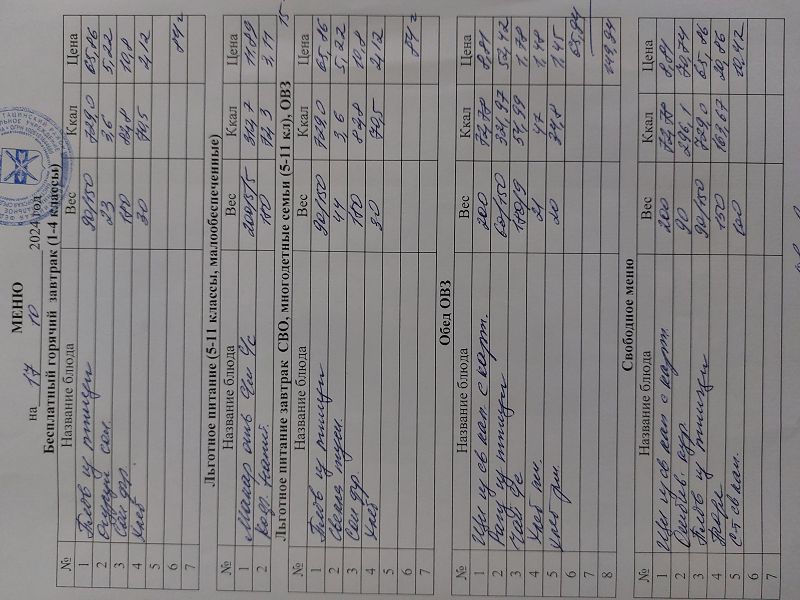 МЕНЮ
на 17 10 2024 год
Бесплатный горячий завтрак (1-4 классы)
№ Название блюда Вес Ккал Цена
1 Плов из птицы 90/150 729,0 65,86
2 Огурец сол. 23 3,6 5,22
3 Сок фр. 180 82,8 10,8
4 Хлеб 30 70,5 2,12
5
6 84
7
Льготное питание (5-11 классы, малообеспеченные)
№ Название блюда Вес Ккал Цена
1 Макар отв 200/5/5 314,7 11,89
2 180 72,3 3,11
Льготное питание завтрак СВО, многодетные семьи (5-11 кл), ОВЗ
№ Название блюда Вес Ккал Цена
1 Плов из птицы 90/150 729,0 65,86
2 Свекла туш. 44 3,6 5,22
3 Сок фр 180 82,8 10,8
4 Хлеб 30 70,5 2,12
5
6 84
7
Обед ОВЗ
№ Название блюда Вес Ккал Цена
1 Щи из св кап. с карт. 200 72,78 8,81
2 Рагу из птицы 60/150 52,42
3 Чай с/с 180/9 54,99 1,78
4 Хлеб пш. 21 47 1,48
5 Хлеб рж. 20 34,8 1,45
6 65,94
7
8 149,94
Свободное меню
№ Название блюда Вес Ккал Цена
1 Щи из св кап с карт. 200 72,78 8,81
2 90 296,1
3 Плов из птицы 90/150 729,0 65,86
4 Пюре 150 163,67 20,86
5 С-т св кап. 100 10,42
6
7
8